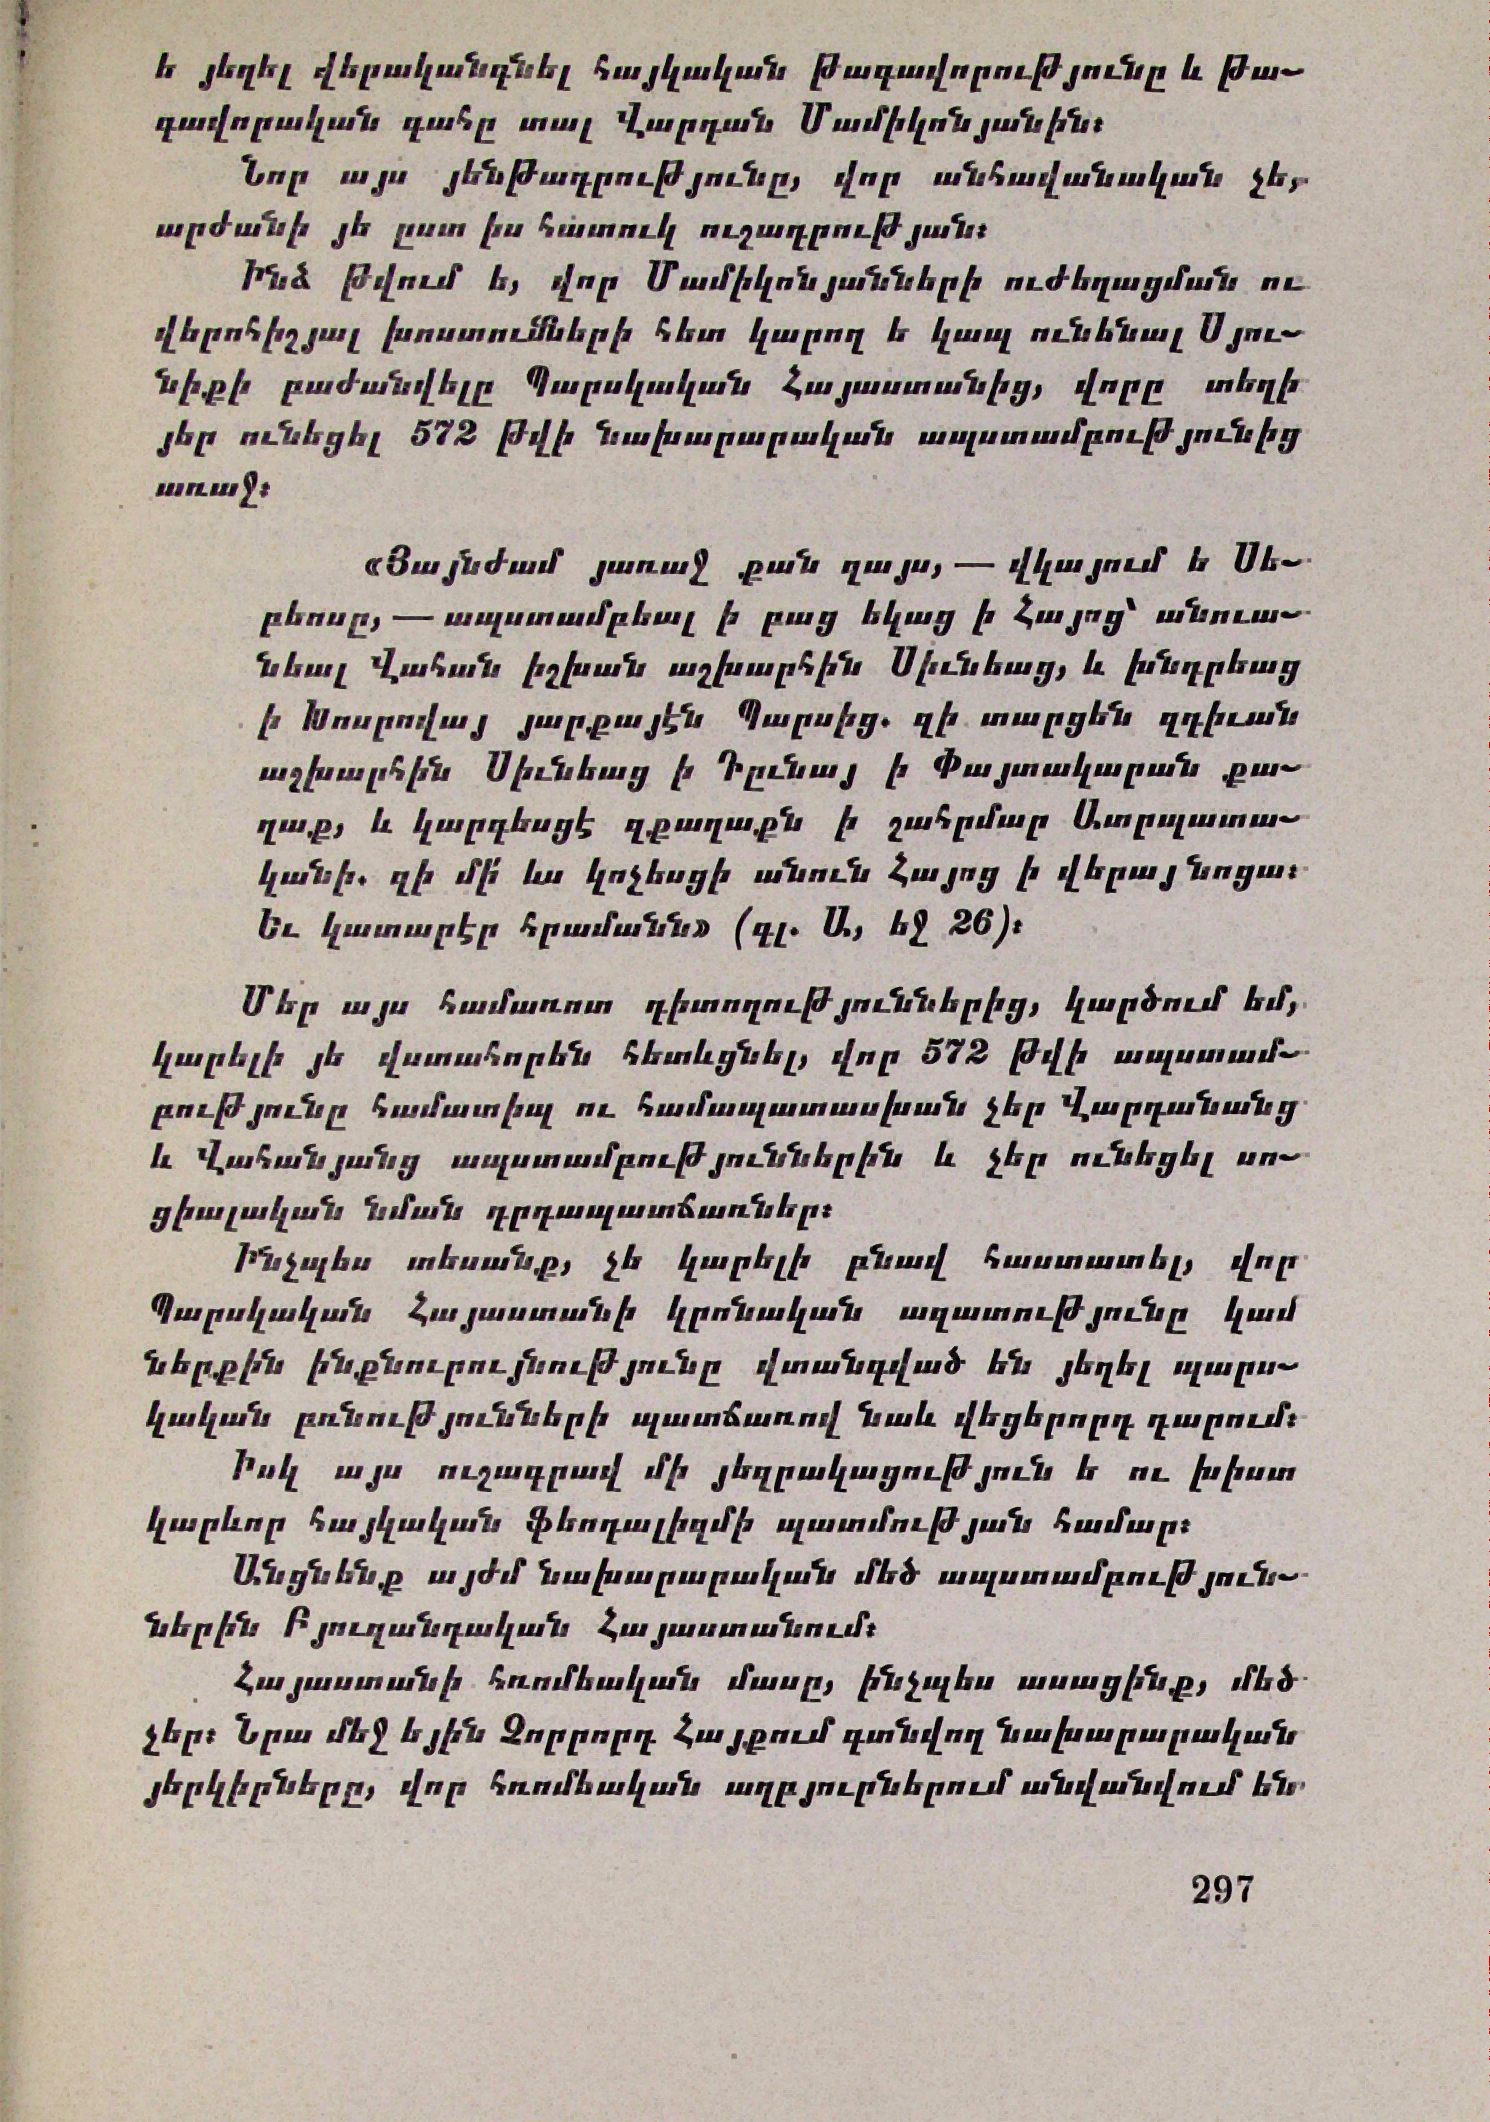 ե յեղել վերականգնել հայկական թագավորությունը և թա-
գավորական գահը տալ Վարդան Մամիկոնյանին։
Նոր այս յենթադրությունը, վոր անհավանական չե,
արժանի յե ըստ իս հատուկ ուշադրության։
Ինձ թվում ե, վոր Մամիկոնյանների ուժեղացման ու
վերոհիշյալ խոստումների հետ կարող ե կապ ունենալ Սյու-
նիքի բաժանվելը Պարսկական Հայաստանից, վորը տեղի
յեր ունեցել 572 թվի նախարարական ապստամբությունից
առաջ։
«Յայնժամ յառաջ քան զայս, — վկայում ե Սե-
բեոսը, — ապստամբեալ ի բաց եկաց ի Հայոց՝ անուա-
նեալ Վահան իշխան աշխարհին Սիւնեաց, և խնդրեաց
ի Խոսրովայ յարքայէն Պարսից. զի տարցեն զդիւան
աշխարհին Սիւնեաց ի Դըւնայ ի Փայտակարան քա-
ղաք, և կարգեսցէ զքաղաքն ի շահրմար Ատրպատա-
կանի. զի մի՛ ևս կոչեսցի անուն Հայոց ի վերայ նոցա։
Եւ կատարէր հրամանն» (գլ. Ա., եջ 26)։
Մեր այս համառոտ դիտողություններից, կարծում եմ,
կարելի յե վստահորեն հետևցնել, վոր 572 թվի ապստամ-
բությունը համատիպ ու համապատասխան չեր Վարդանանց
և Վահանյանց ապստամբություններին և չեր ունեցել սո-
ցիալական նման դրդապատճառներ։
Ինչպես տեսանք, չե կարելի բնավ հաստատել, վոր
Պարսկական Հայաստանի կրոնական ազատությունը կամ
ներքին ինքնուրույնությունը վտանգված են յեղել պարս-
կական բռնությունների պատճառով նաև վեցերորդ դարում։
Իսկ այս ուշագրավ մի յեզրակացություն ե ու խիստ
կարևոր հայկական ֆեոդալիզմի պատմության համար։
Անցնենք այժմ նախարարական մեծ ապստամբություն-
ներին Բյուզանդական Հայաստանում։
Հայաստանի հռոմեական մասը, ինչպես ասացինք, մեծ
չեր։ Նրա մեջ եյին Չորրորդ Հայքում գտնվող նախարարական
յերկիրները, վոր հռոմեական աղբյուրներում անվանվում են
297